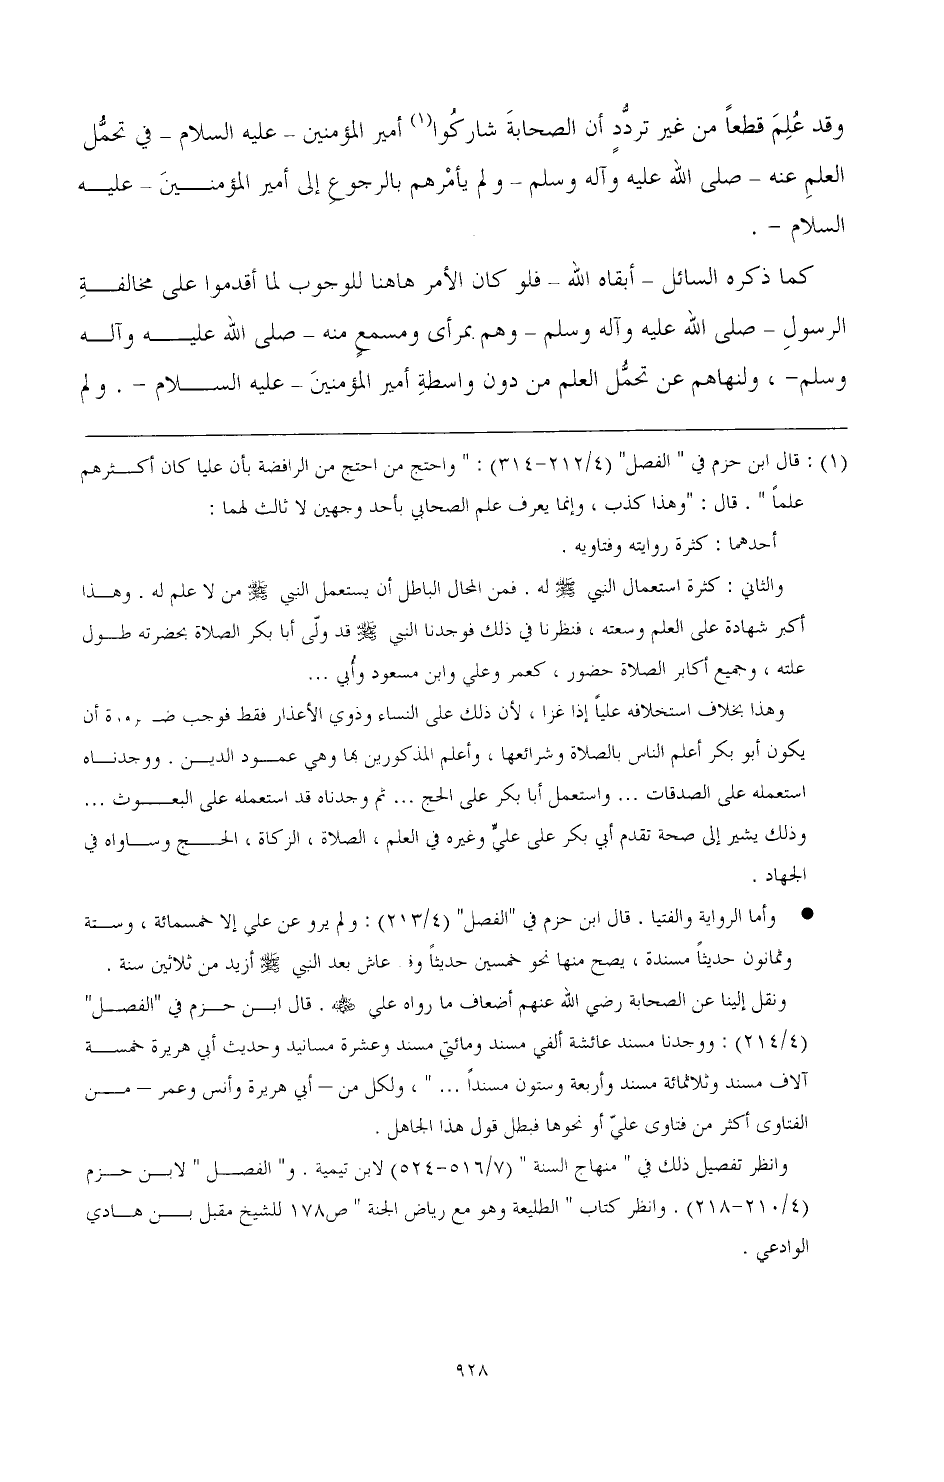 وقد عُلِمَ قطعاً من غير تردُّدٍ أن الصحابةَ شاركُوا(١) أمير المؤمنين – عليه السلام – في تحمُّل
العلمِ عنه – صلى الله عليه وآله وسلم – ولم يأمرْهم بالرجوعِ إلى أمير المؤمنينَ – عليه
السلام – .
كما ذكره السائل – أبقاه الله – فلو كان الأمر هاهنا للوجوب لما أقدموا على مخالفةِ
الرسولِ – صلى الله عليه وآله وسلم – وهم بمرأى ومسمعٍ منه – صلى الله عليه وآله
وسلم– ، ولنهاهم عن تحمُّل العلم من دون واسطةِ أمير المؤمنينَ – عليه السلام – . ولم
(١) : قال ابن حزم في " الفصل" (٢١٢/٤–٣١٤) : " واحتج من احتج من الرافضة بأن عليا كان أكثرهم
علماً " . قال : "وهذا كذب ، وإنما يعرف علم الصحابي بأحد وجهين لا ثالث لهما :
أحدهما : كثرة روايته وفتاويه .
والثاني : كثرة استعمال النبي ﷺ له . فمن المحال الباطل أن يستعمل النبي ﷺ من لا علم له . وهذا
أكبر شهادة على العلم وسعته ، فنظرنا في ذلك فوجدنا النبي ﷺ قد ولّى أبا بكر الصلاة بحضرته طول
علته ، وجميع أكابر الصلاة حضور ، كعمر وعلي وابن مسعود وأُبي ...
وهذا بخلاف استخلافه علياً إذا غزا ، لأن ذلك على النساء وذوي الأعذار فقط فوجب أن
يكون أبو بكر أعلم الناس بالصلاة وشرائعها ، وأعلم المذكورين بها وهي عمود الدين . ووجدناه
استعمله على الصدقات ... واستعمل أبا بكر على الحج ... ثم وجدناه قد استعمله على البعوث ...
وذلك يشير إلى صحة تقدم أبي بكر على عليٍّ وغيره في العلم ، الصلاة ، الزكاة ، الحج وساواه في
الجهاد .
● وأما الرواية والفتيا . قال ابن حزم في "الفصل" (٢١٣/٤) : ولم يرو عن علي إلا خمسمائة ، وستة
وثمانون حديثاً مسندة ، يصح منها نحو خمسين حديثاً عاش بعد النبي ﷺ أزيد من ثلاثين سنة .
ونقل إلينا عن الصحابة رضي الله عنهم أضعاف ما رواه علي رضي الله عنه . قال ابن حزم في "الفصل"
(٢١٤/٤) : ووجدنا مسند عائشة ألفي مسند ومائتي مسند وعشرة مسانيد وحديث أبي هريرة خمسة
آلاف مسند وثلاثمائة مسند وأربعة وستون مسنداً ... " ، ولكل من – أبي هريرة وأنس وعمر – من
الفتاوى أكثر من فتاوى عليّ أو نحوها فبطل قول هذا الجاهل .
وانظر تفصيل ذلك في " منهاج السنة " (٥١٦/٧–٥٢٤) لابن تيمية . و" الفصل " لابن حزم
(٢١٠/٤–٢١٨) . وانظر كتاب " الطليعة وهو مع رياض الجنة " ص١٧٨ للشيخ مقبل بن هادي
الوادعي .
٩٢٨